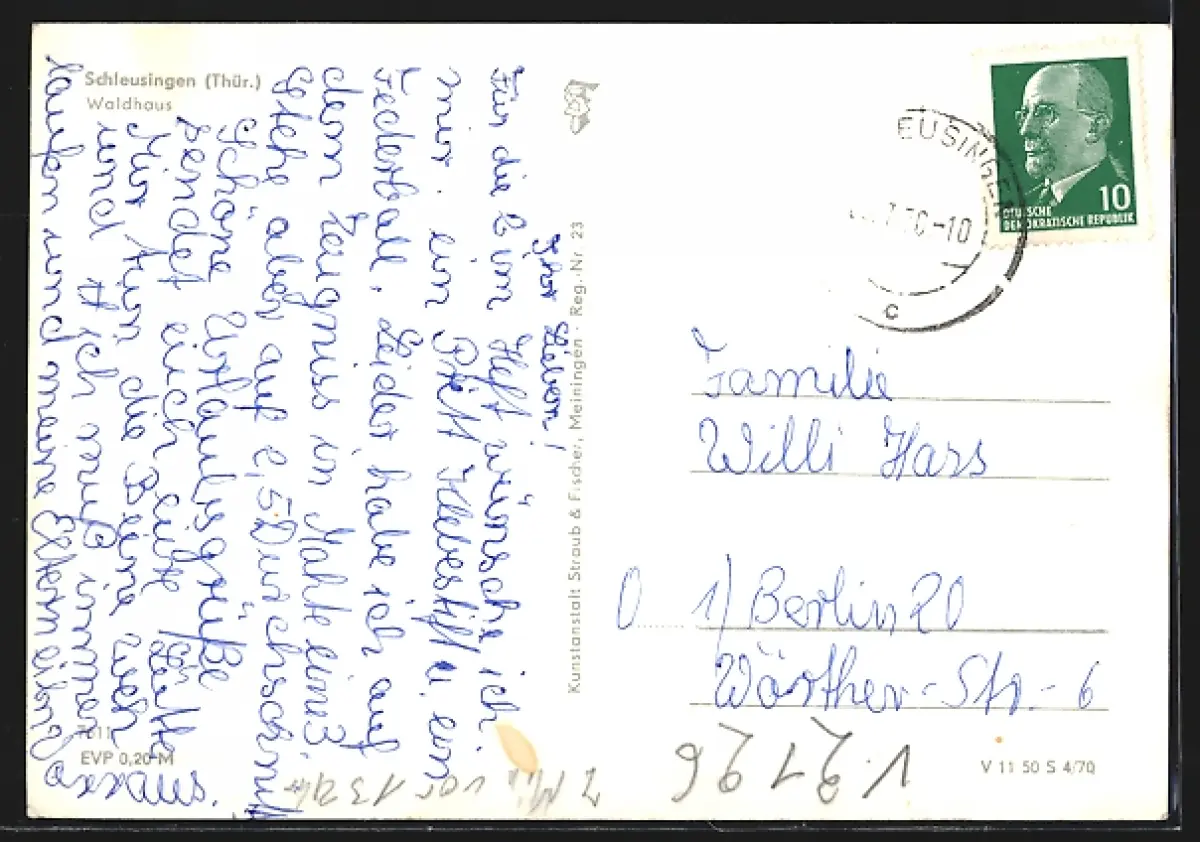 Schleusingen (Thür.)
Waldhaus
Ihr Lieben!
Für die 2 im Heft wünsche ich
mir. ein Pikit Klebestift u. ein
Federball. Leider habe ich auf
dem Zeugniss in Mahte eine 3.
Stehe aber auf 2,5 Durchschnitt
Schöne Urlaubsgrüße
sendet euch eure
Mir tun die Beine weh
und ich muß immer
laufen und meine Eltern
Kunstanstalt Straub & Fischer, Meiningen · Reg.-Nr. 23
DEUTSCHE
DEMOKRATISCHE REPUBLIK
10
EUSINGEN
-10
c
Familie
Willi Hass
1) Berlin 20
Wörther-Str.-6
7611
EVP 0,20 M
V 11 50 S 4/70